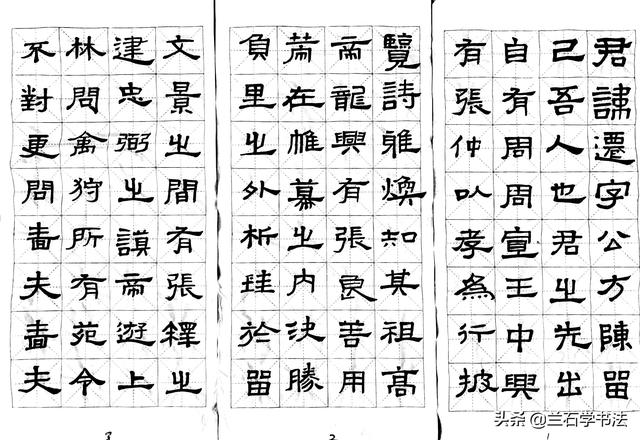 君諱遷字公方陳留
己吾人也君之先出
自有周周宣王中興
有張仲以孝為行披
1
覽詩雅煥知其祖高
帝龍興有張良善用
策在帷幕之內決勝
負里之外析珪於留
2
文景之間有張釋之
建忠弼之謨帝遊上
林問禽狩所有苑令
不對更問嗇夫嗇夫
3
头条 @兰石学书法